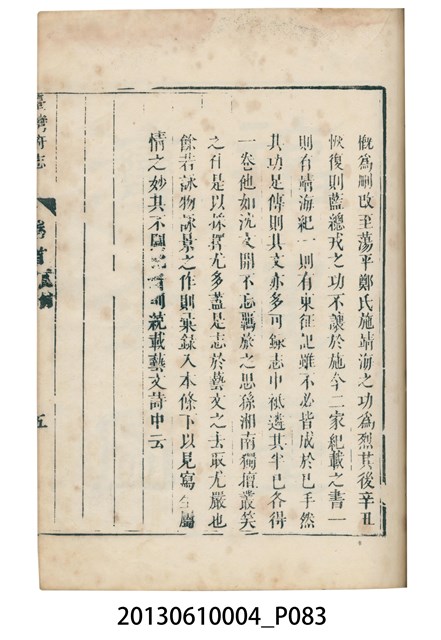 觀為刪改至蕩平鄭氏施靖海之功為烈其後辛丑
恢復則藍總戎之功不讓於施今二家紀載之書一
則有靖海紀一則有東征記雖不必皆成於已手然
其功足傳則其文亦多可錄志中祗遴其半已各得
一卷他如沈文開不忘羈旅之思孫湘南獨擅叢笑
之作是以採擇尤多蓋是志於藝文之去取尤嚴也
餘若詠物詠景之作則彙錄入本條下以見寫生屬
情之妙其不與者則統載藝文詩中云
臺灣府志
卷首
五
20130610004_P083